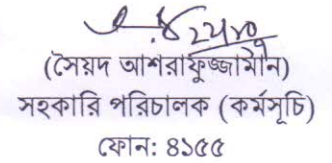 (সৈয়দ আশরাফুজ্জামান)
সহকারি পরিচালক (কর্মসূচি)
ফোন: ৪১৫৫